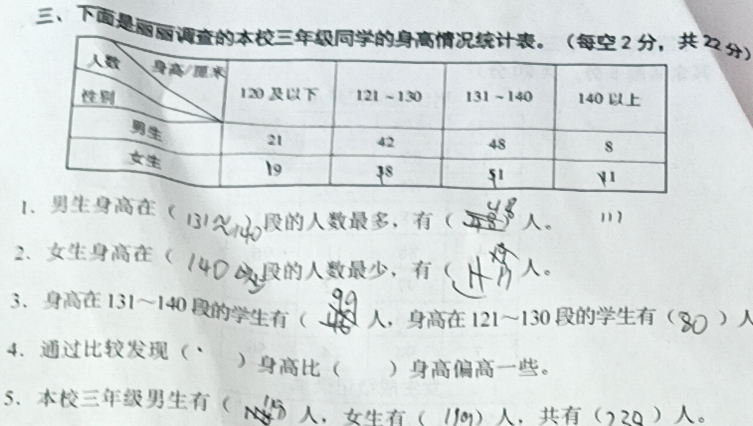 三、下面是丽丽调查的本校三年级同学的身高情况统计表。（每空2分，共22分）
人数 身高/厘米 性别 120及以下 121~130 131~140 140以上
男生 21 42 48 8
女生 19 38 51 11
1、男生身高在（131~140）段的人数最多，有（48）人。
2、女生身高在（140以上）段的人数最少，有（）人。
3、身高在131～140段的学生有（99）人，身高在121～130段的学生有（80）人
4、通过比较发现（ ）身高比（ ）身高偏高一些。
5、本校三年级男生有（）人，女生有（）人，共有（）人。